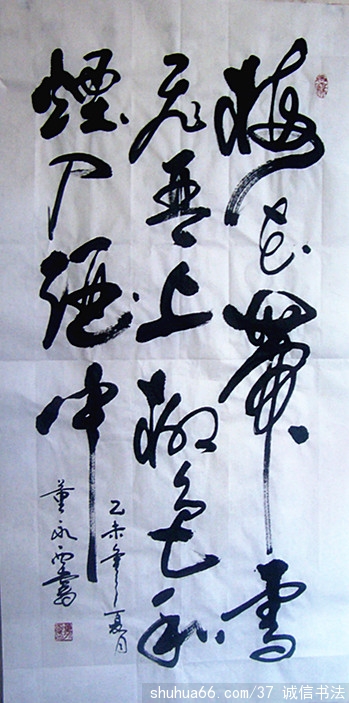 梅花帶雪
飛琴上柳色和
煙入酒中
乙未年夏月
董永西書
shuhua66.com/37 诚信书法